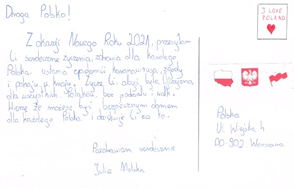 Droga Polsko!
Z okazji Nowego Roku 2021, przesyłam
Ci serdeczne życzenia, zdrowia dla każdego
Polaka, ustania epidemii koronawirusa, zgody
i pokoju w kraju. Życzę Ci abyś była
dla wszystkich Polaków, bez podziału
Wierzę że możesz być bezpiecznym domem
dla każdego Polaka i dziękuję Ci za to.
Pozdrawiam serdecznie
Julia
I LOVE
POLAND
Polska
Ul. Wiejska 4
00-902 Warszawa